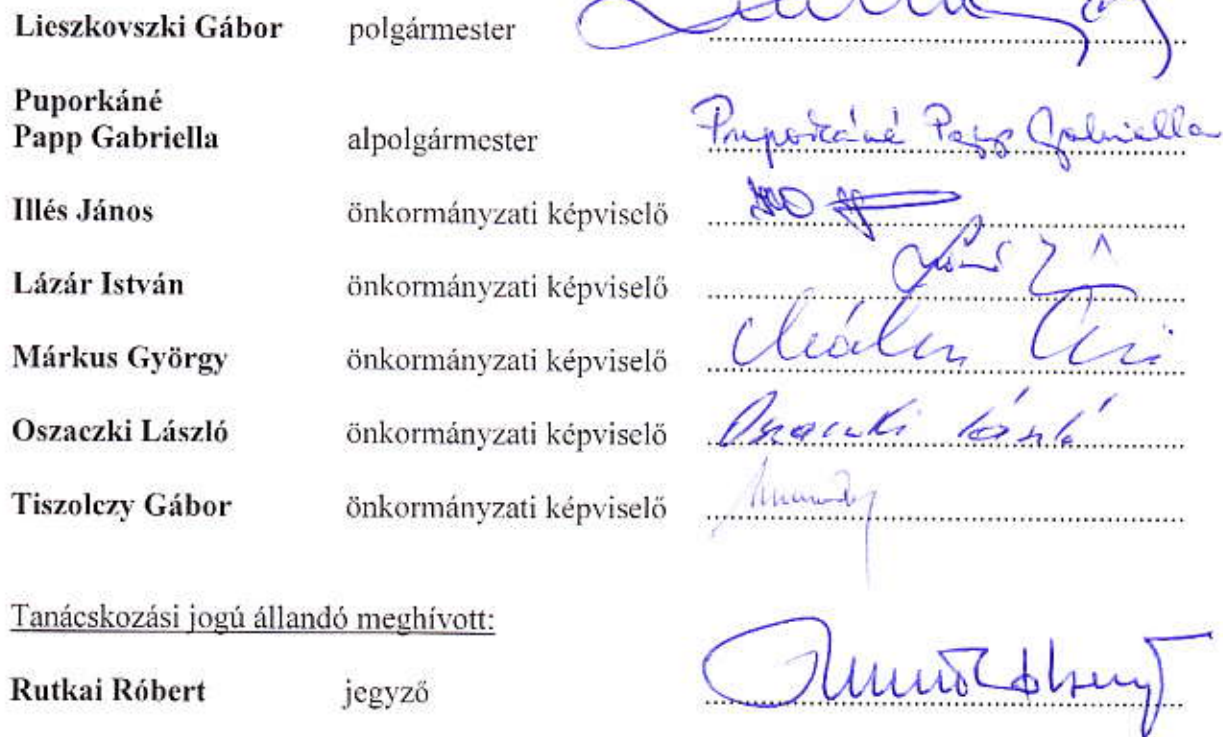 Lieszkovszki Gábor polgármester
Puporkáné
Papp Gabriella alpolgármester Puporkáné Papp Gabriella
Illés János önkormányzati képviselő
Lázár István önkormányzati képviselő
Márkus György önkormányzati képviselő
Oszaczki László önkormányzati képviselő Oszaczki László
Tiszolczy Gábor önkormányzati képviselő
Tanácskozási jogú állandó meghívott:
Rutkai Róbert jegyző